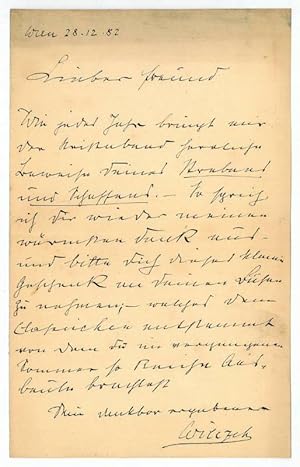 Wien 28.12.82
Lieber Freund
Wie jedes Jahr bringt mir
der Christabend herrliche
Beweise deines Strebens
und Schaffens. – So sprech
ich dir wieder meinen
wärmsten Dank aus
und bitte dich dieses kleine
Geschenk an deinen Busen
zu nehmen, – welches dem
entstammt
von dem du im vergangenen
Sommer so Reiche Aus-
beute brachtest
Dein dankbar ergebener
Wilczek